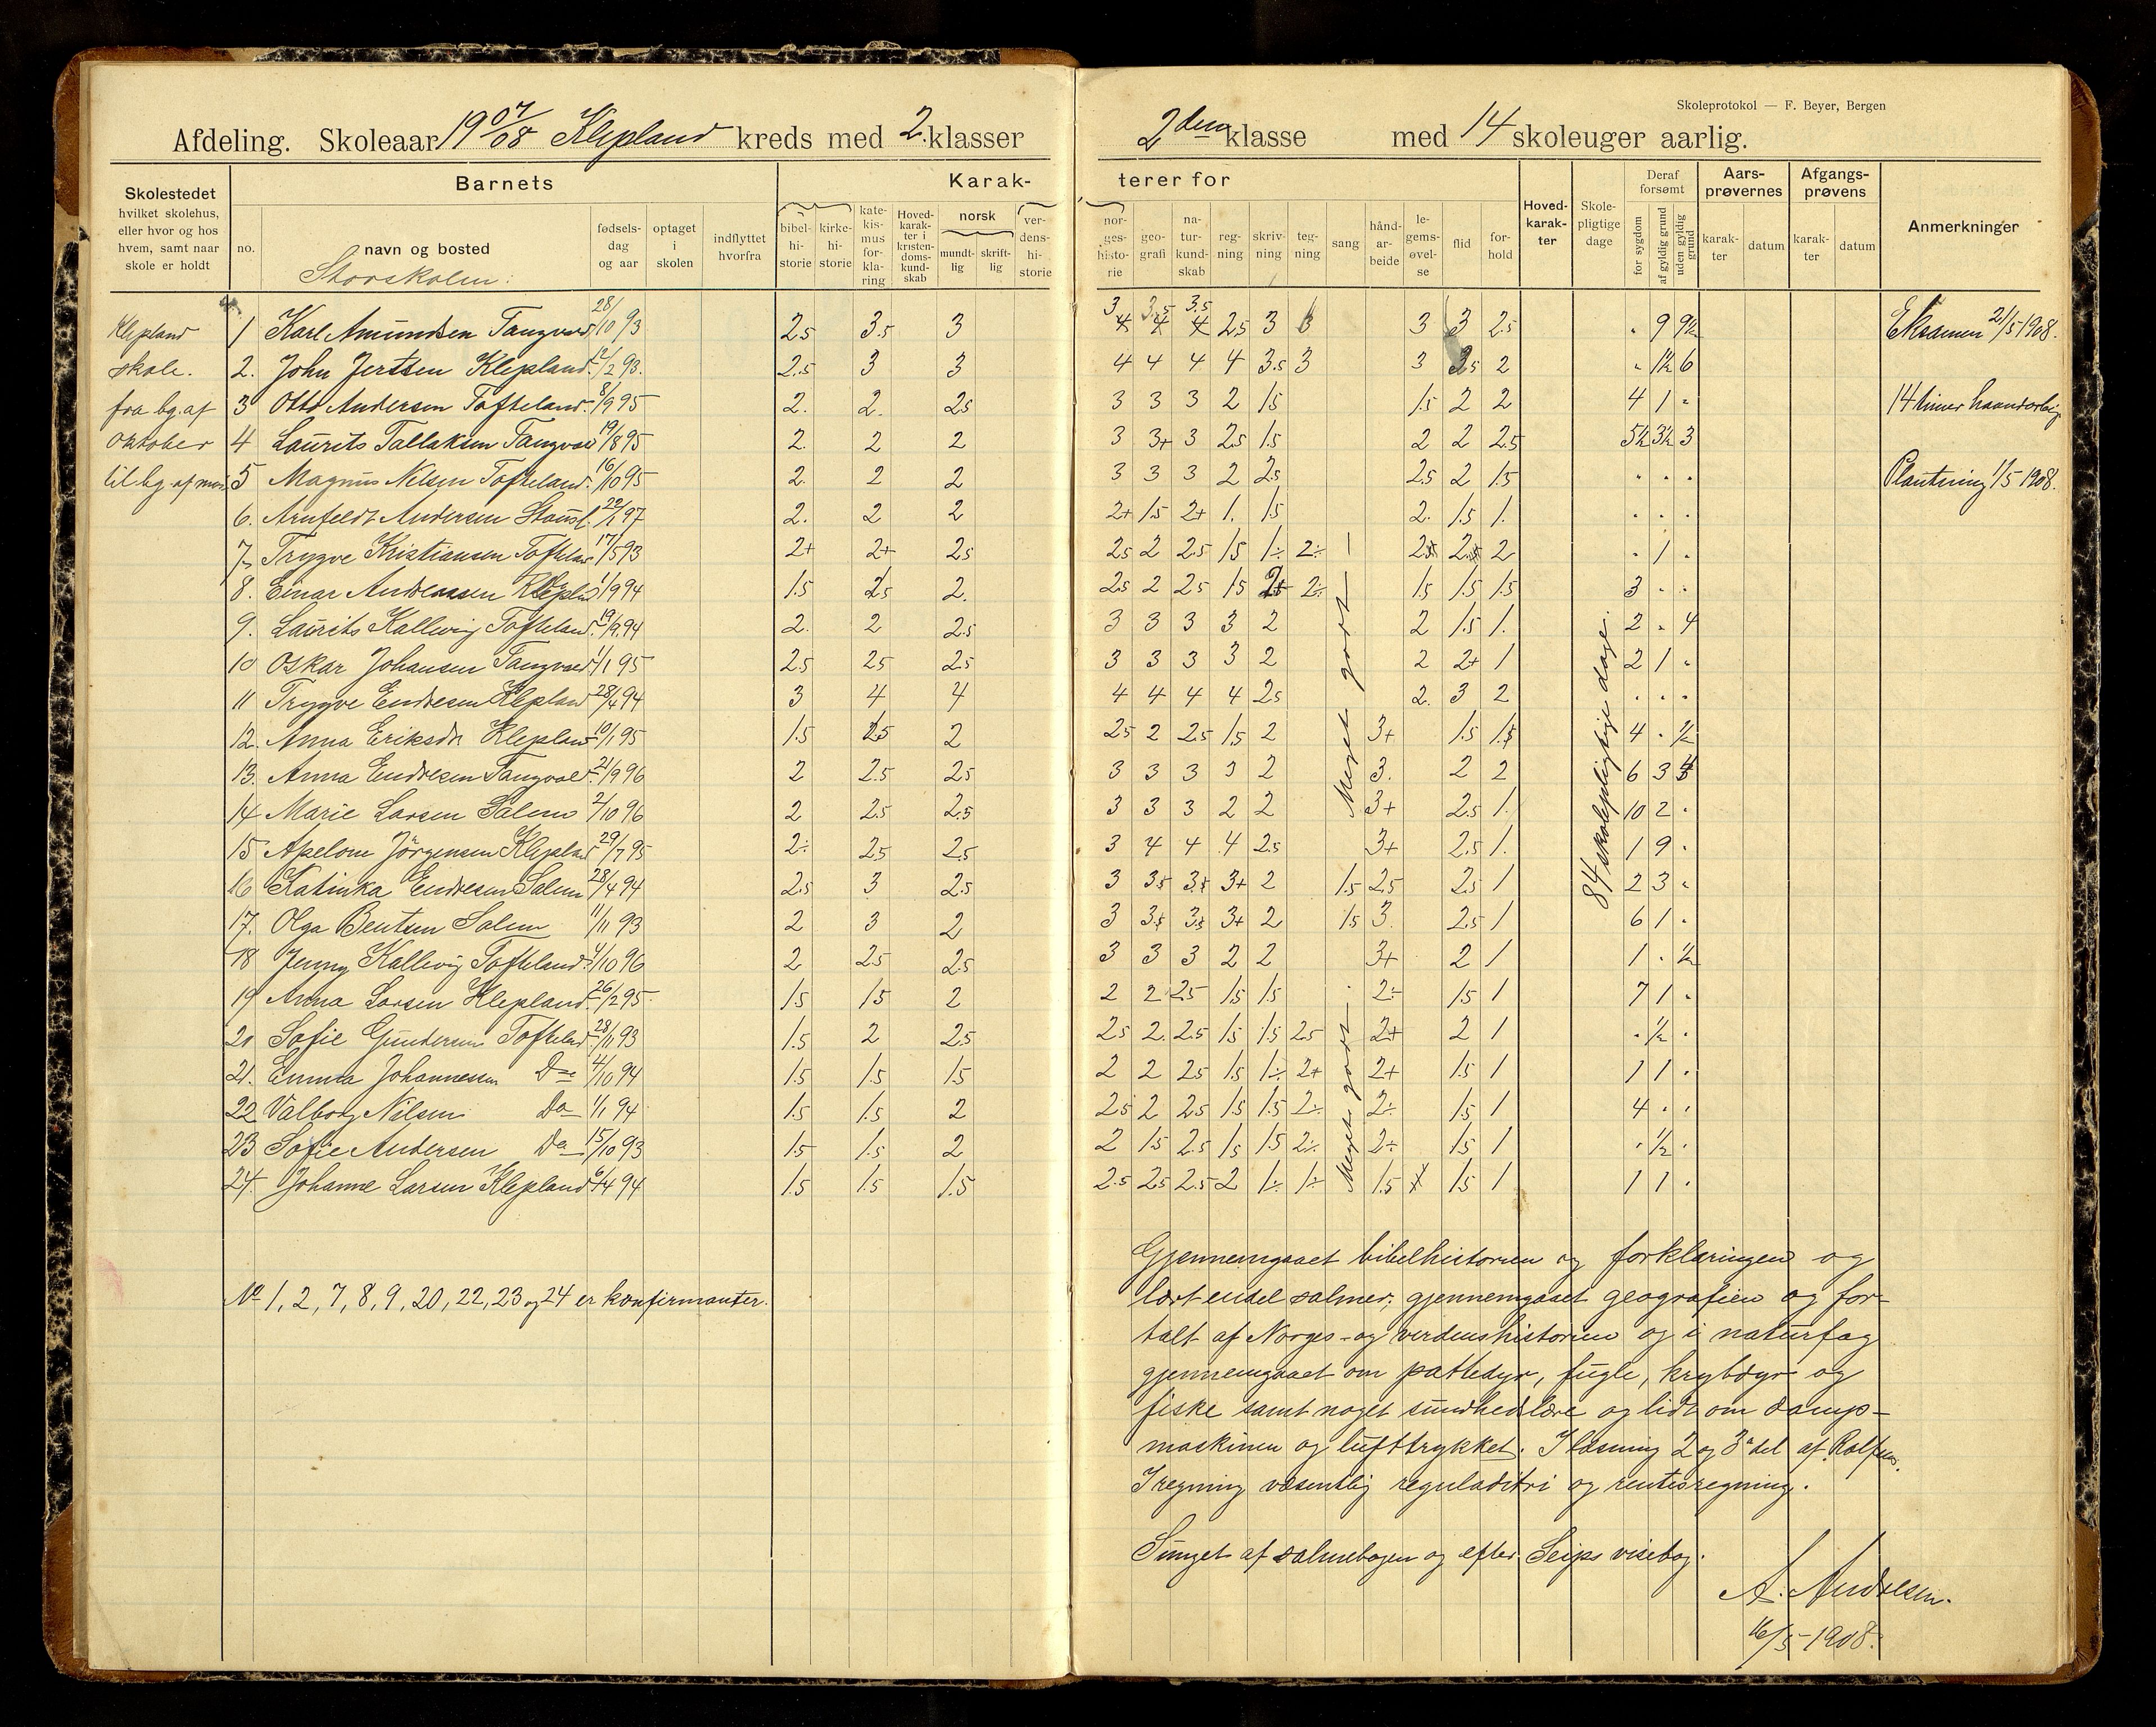 Skoleprotokol — F. Beyer, Bergen
Afdeling. Skoleaar 1907/08 Klepland kreds med 2 klasser 2den klasse med 14 skoleuger aarlig.
Skolestedet hvilket skolehus, eller hvor og hos hvem, samt naar skole er holdt
Barnets
no. navn og bosted fødsels-dag og aar optaget i skolen indflyttet hvorfra
Storskolen.
Karak-terer for
bibel-hi-storie kirke-hi-storie kate-kis-mus for-kla-ring Hoved-karak-ter i kristen-doms-kund-skab norsk mundt-lig skrift-lig ver-dens-hi-storie
nor-ges-histo-rie geo-grafi na-tur-kund-skab reg-ning skriv-ning teg-ning sang hånd-ar-beide le-gems-øvel-se flid for-hold
Hoved-karak-ter Skole-pligtige dage Deraf forsømt for sygdom af gyldig grund uden gyldig grund
Aars-prøvernes karak-ter datum Afgangs-prøvens karak-ter datum Anmerkninger
Klepland 1 Karl Amundsen Tangvald 28/10 93 2.5 3.5 3 3 3.5 3.5 2.5 3 3 3 2.5 . 9 9½ Eksamen 2/5 1908.
skole. 2. John Jertsen Klepland 12/2 93. 2.5 3 3 4 4 4 4 3.5 3 3 3.5 2 . 1½ 6
fra bg. af 3 Otto Andersen Tofteland. 8/9 95 2. 2. 2.5 3 3 3 2 1.5 1.5 2 2 4 1 . 14 timer haandarbeig
Oktober 4 Laurits Tallaksen Tangvald 19/8 95 2. 2 2 3 3+ 3 2.5 1.5 2 2 2.5 5½ 3½ 3
til bg. af mai 5 Magnus Nilsen Tofteland. 16/10 95 2. 2 2 3 3 3 2 2.5 2.5 2 1.5 . . . Plantning 1/5 1908.
6. Arnfeldt Andersen 22/1 97 2. 2 2 2+ 1.5 2+ 1. 1.5 2. 1.5 1. . . .
7. Trygve Kristiansen Tofteland 17/5 93 2+ 2+ 2.5 2.5 2 2.5 1.5 1÷ 2÷ 2 . 1 .
8. Einar Andreassen Klepland 1/9 94 1.5 2.5 2. 2.5 2 2.5 1.5 2+ 2÷ 1.5 1.5 1.5 3 . .
9. Laurits Kallevig Tofteland. 19/9 94 2. 2 2.5 3 3 3 3 2 2 1.5 1. 2 . 4
10 Oskar Johansen Tangvald 1/1 95 2.5 2.5 2.5 3 3 3 3 2 2 2+ 1 2 1 .
11 Trygve Endresen Klepland 28/4 94 3 4 4 4 4 4 4 2.5 2. 3 2 . . .
12. Anna Eriksdr. Klepland 10/1 95 1.5 2.5 2 2.5 2 2.5 1.5 2 3+ 1.5 1.5 4 . ½
13. Anna Endresen Tangvald 21/9 96 2 2.5 2.5 3 3 3 3 2 3. 2 2 6 3 4
14 Marie Larsen Salem 2/10 96 2 2.5 2.5 3 3 3 2 2 3+ 2.5 1. 10 2 .
15 Apelone Jörgensen Klepland 29/7 95 2÷ 2.5 2.5 3 4 4 4 2.5 3+ 2.5 1. 1 9 .
16 Katinka Endresen Salem 28/4 94 2.5 3 2.5 3 3.5 3.5 3+ 2 1.5 2.5 2.5 1 2 3 .
17. Olga Bentsen Salem 11/11 93 2 3 2 3 3.5 3.5 3+ 2 1.5 3. 2.5 1 6 1 .
18 Jenny Kallevig Tofteland. 4/10 96 2 2.5 2.5 3 3 3 2 2 3+ 2 1 1 . ½
19 Anna Larsen Klepland. 26/2 95 1.5 1.5 2 2 2 2.5 1.5 1.5 2÷ 1.5 1 7 1 .
20 Sofie Gundersen Tofteland 28/11 93 1.5 2 2.5 2.5 2. 2.5 1.5 1.5 2.5 2+ 2 1 . ½ .
21. Emma Johannessen Do 4/10 94 1.5 1.5 1.5 2 2 2.5 1.5 1÷ 2+ 2+ 1.5 1 1 1 .
22 Valborg Nilsen Do 1/1 94 1.5 1.5 2 2.5 2 2.5 1.5 1.5 2÷ 2÷ 1.5 1 4 . .
23 Sofie Andersen Do 15/10 93 1.5 1.5 2 2 1.5 2.5 1.5 1.5 2÷ 2÷ 1.5 1 . ½ .
24. Johanne Larsen Klepland 6/4 94 1.5 1.5 1.5 2.5 2.5 2.5 2 1÷ 1÷ 1.5 1.5 1 1 1 .
Meget godt
Meget godt
84 skolepligtige dage.
No 1, 2, 7, 8, 9, 20, 22, 23 og 24 er konfirmanter.
Gjennemgaaet bibelhistorien og forklaringen og
lært endel salmer; gjennemgaaet geografien og for-
talt af Norges- og verdenshistorien og i naturfag
gjennemgaaet om pattedyr, fugle, krybdyr og
fiske samt noget sundhedslære og lidt om damp-
maskinen og lufttrykket. I læsning 2 og 3 del af Rolfsen.
I regning væsentlig reguladitri og rentesregning.
Sunget af salmebogen og efter Seips visebog.
A. Andresen.
16/5 1908.